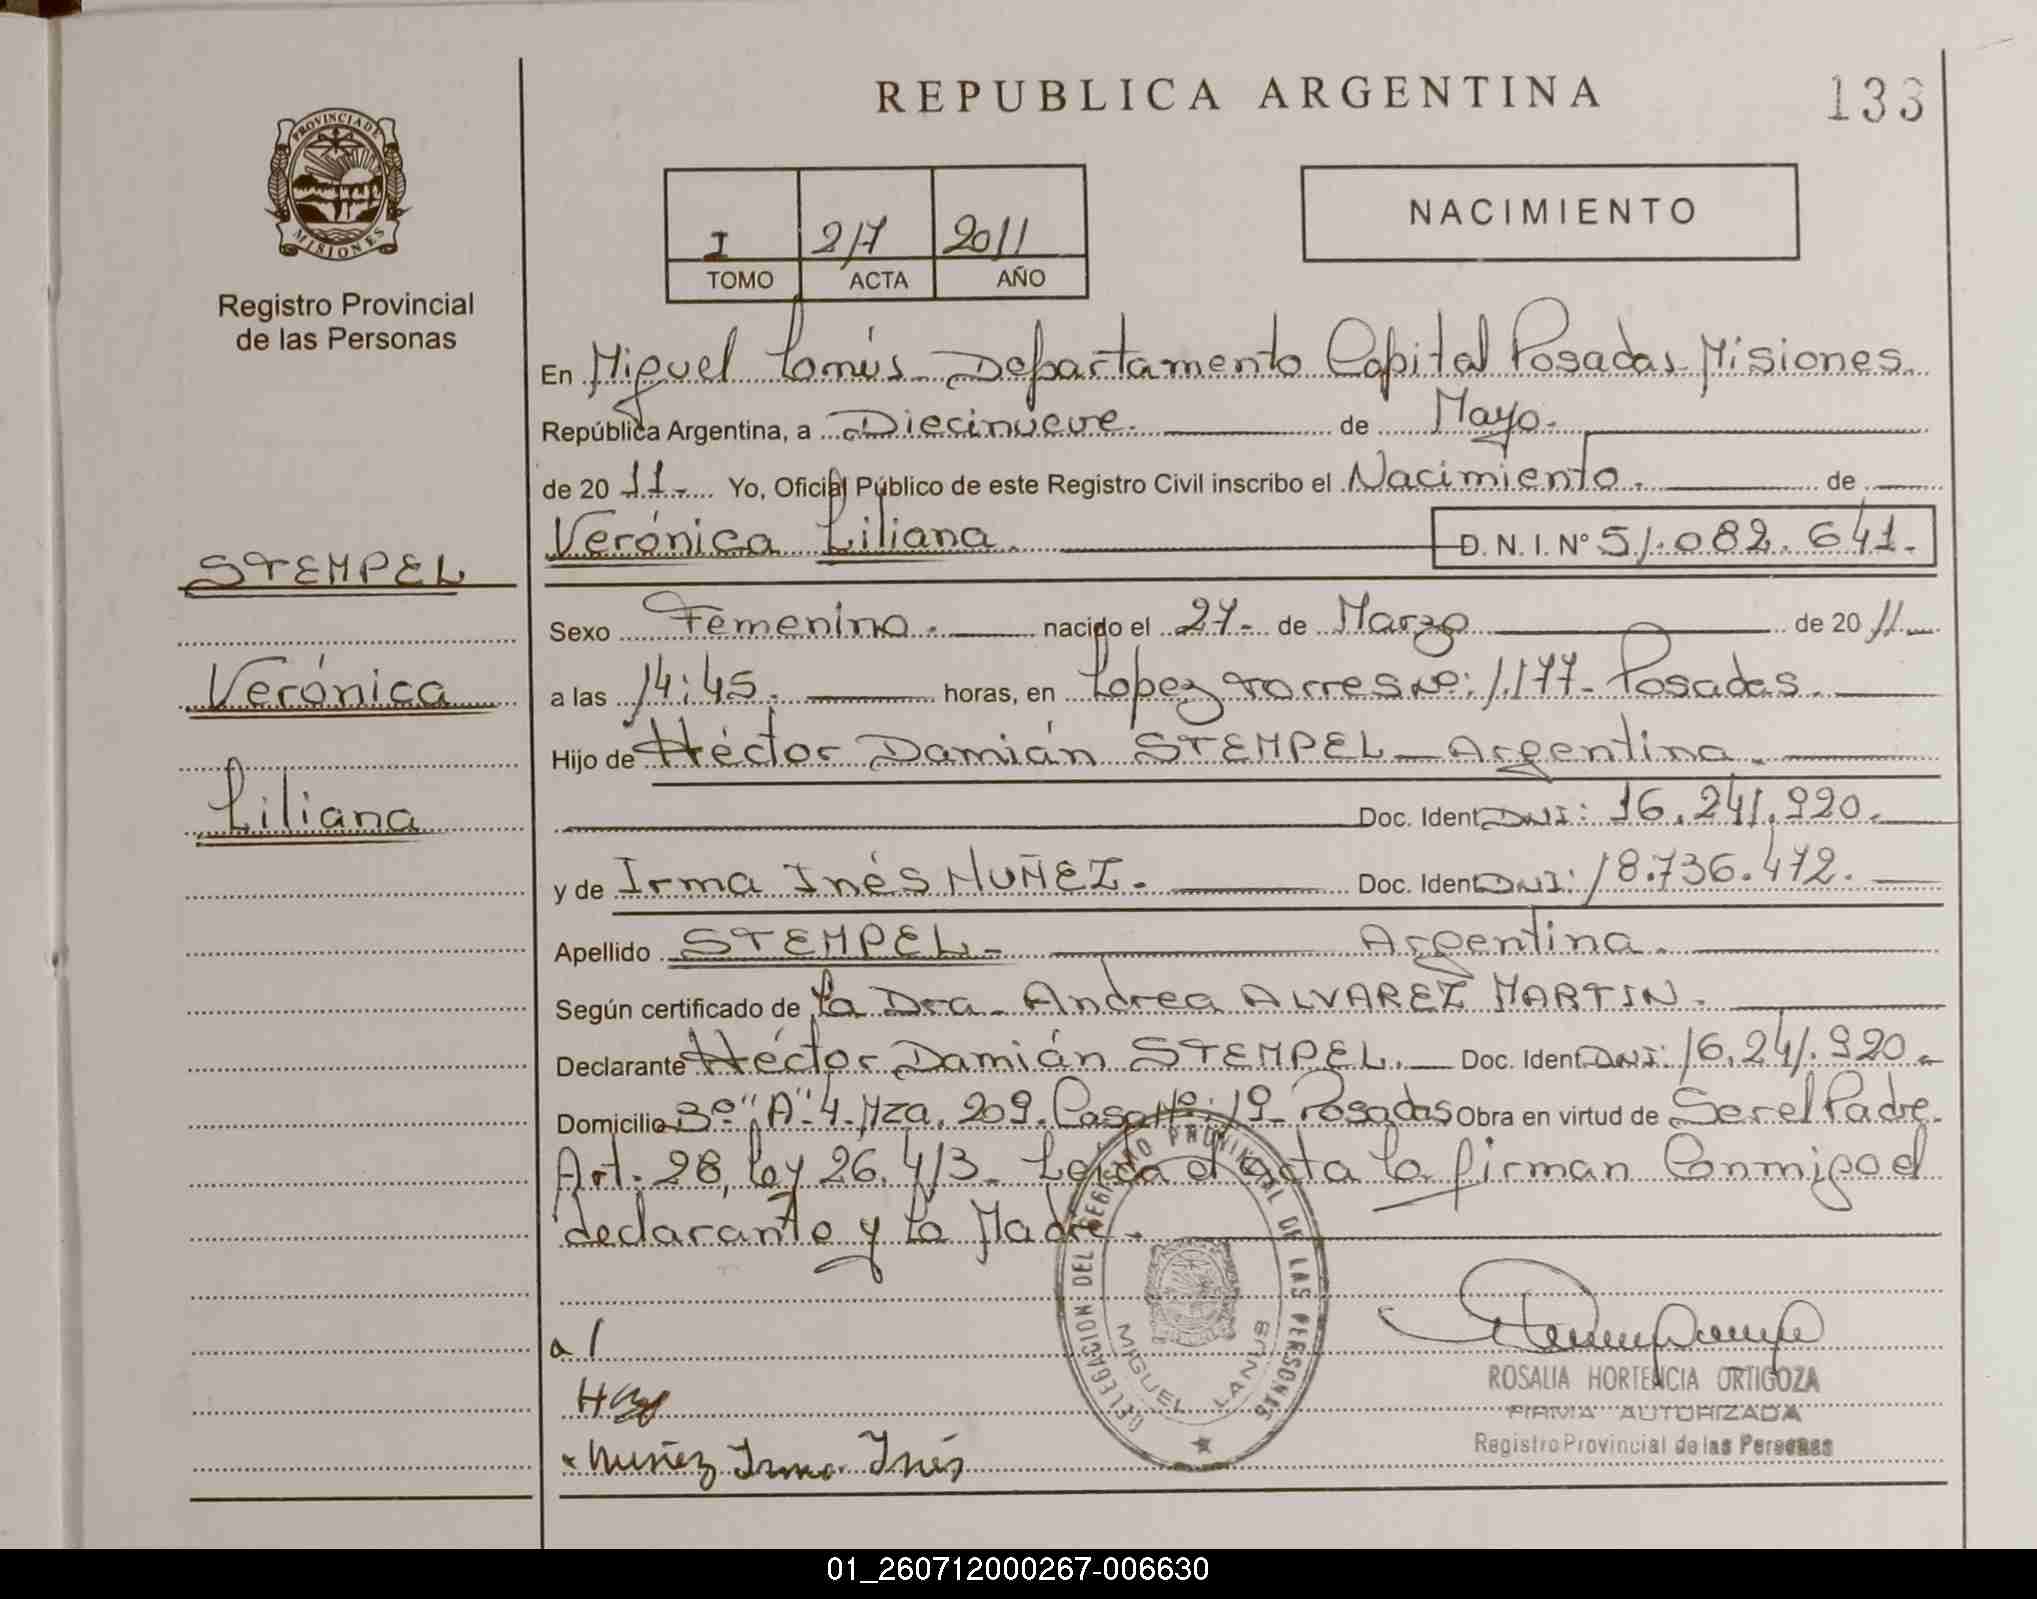 REPUBLICA ARGENTINA
133
PROVINCIA DE
MISIONES
Registro Provincial
de las Personas
I 217 2011
TOMO ACTA AÑO
NACIMIENTO
En Miguel Lanús - Departamento Capital Posadas Misiones.
República Argentina, a Diecinueve. de Mayo.
de 20 11.- Yo, Oficial Público de este Registro Civil inscribo el Nacimiento. de
Verónica Liliana. D. N. I. Nº 51.082.641.
STEMPEL
Verónica
Liliana
Sexo Femenino. nacido el 27- de Marzo de 20 11
a las 14:45. horas, en Lopez Torres Nº: 1.177- Posadas.
Hijo de Héctor Damián STEMPEL - Argentina.
Doc. Ident DNI: 16.241.920.
y de Irma Inés NUÑEZ. Doc. Ident DNI: 18.736.472.
Apellido STEMPEL- Argentina.
Según certificado de La Dra. Andrea ALVAREZ MARTIN.
Declarante Héctor Damián STEMPEL. Doc. Ident DNI: 16.241.920.
Domicilio 3º "A" 4. Mza. 209. Casa Nº: 19- Posadas Obra en virtud de Ser el Padre.
Art. 28, Ley 26.413- Leida el acta la firman Conmigo el
declarante y la Madre.
DELEGACION DEL REGISTRO PROVINCIAL DE LAS PERSONAS
MIGUEL LANUS
ROSALIA HORTENCIA ORTIGOZA
FIRMA AUTORIZADA
Registro Provincial de las Personas
Nuñez Irma Inés
01_260712000267-006630